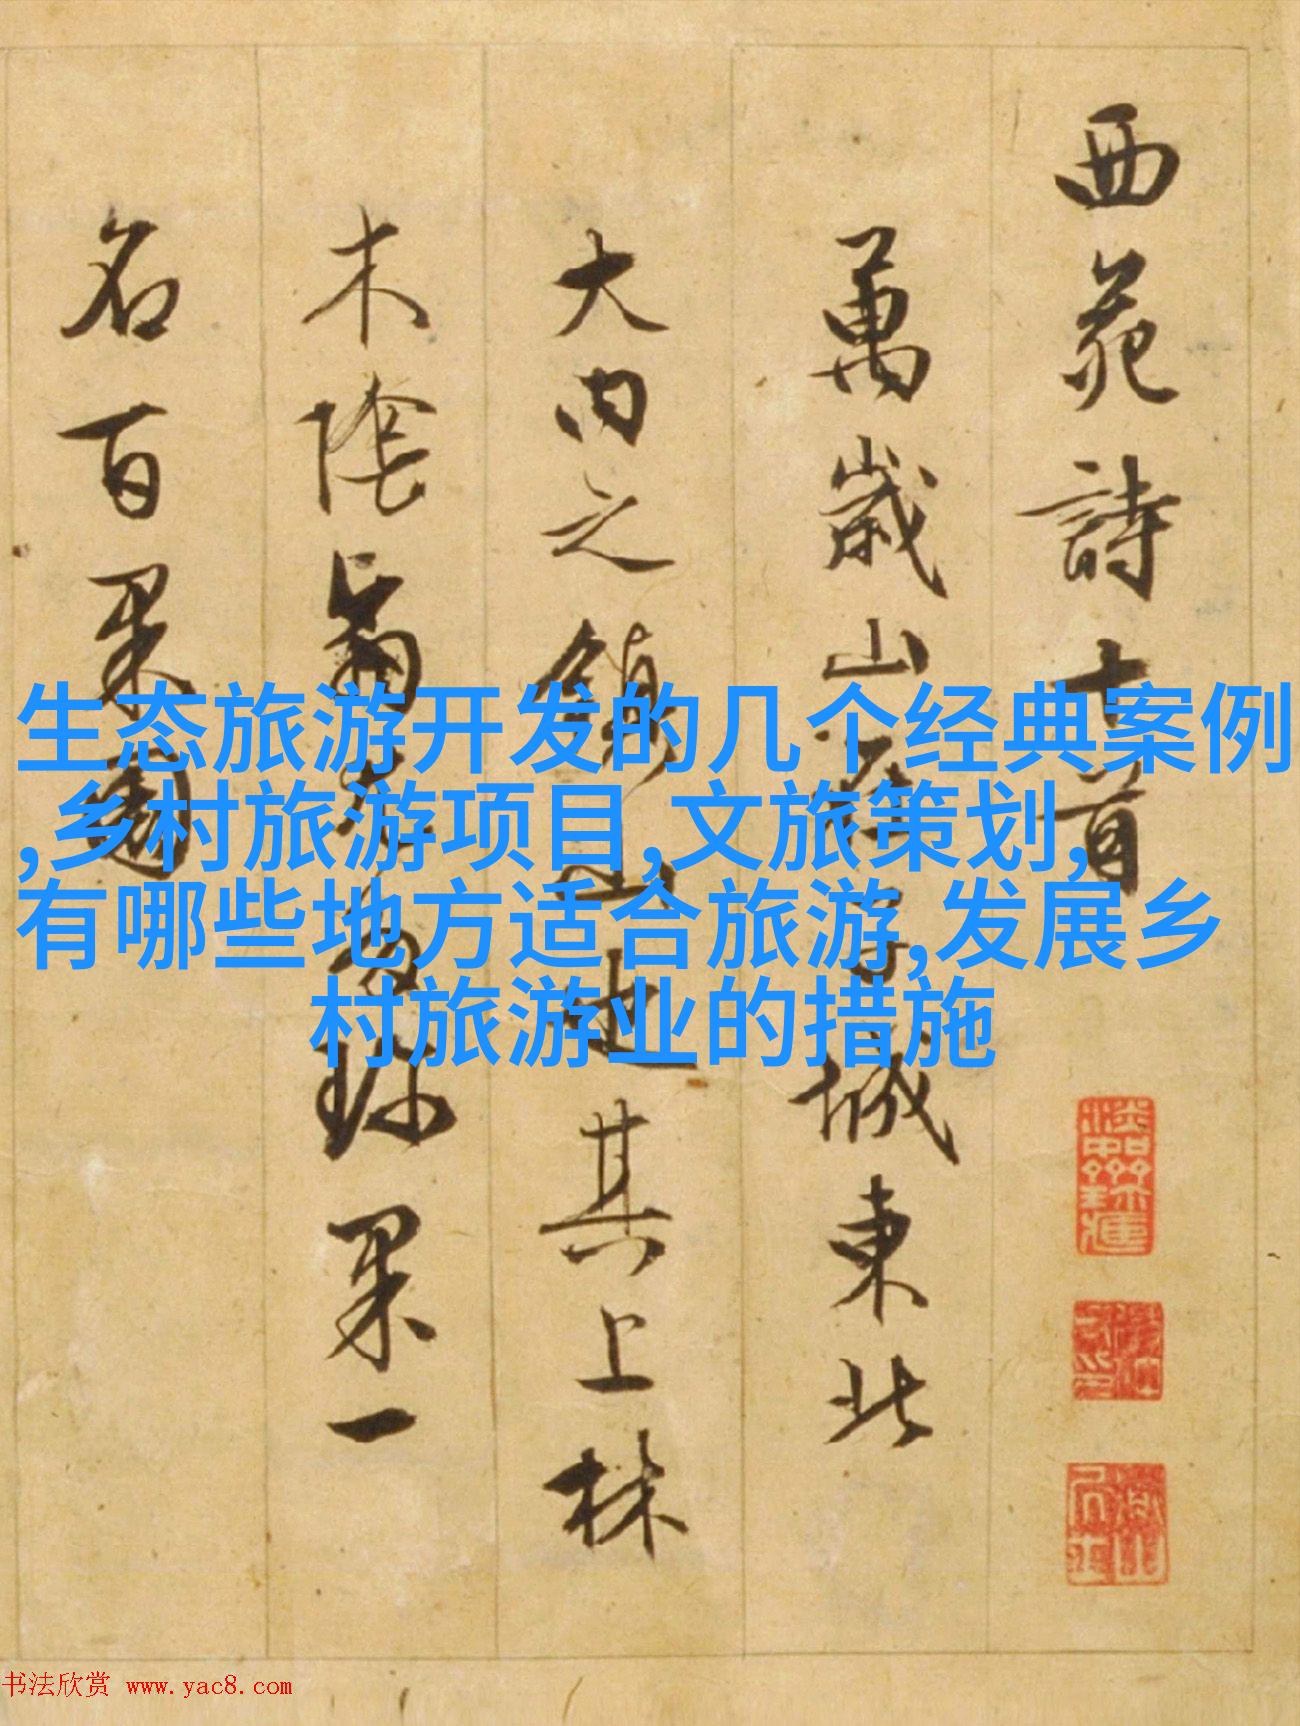 西苑詩十首
萬歲山在子城東北
大内之鎮山也其上林
木陰翳尤多珍果一
名百果園
生态旅游开发的几个经典案例
,乡村旅游项目,文旅策划,
有哪些地方适合旅游,发展乡
村旅游业的措施
书法欣赏 www.yac8.com